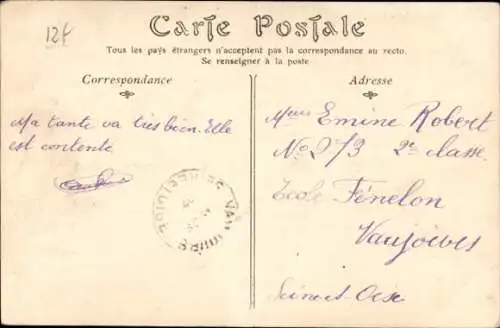 12f
Carte Postale
Tous les pays étrangers n'acceptent pas la correspondance au recto.
Se renseigner à la poste
Correspondance
Adresse
Ma tante va très bien. Elle
est contente
Emine Robert
No 273 2e classe
Ecole Fénelon
Vaujours
Seine et Oise